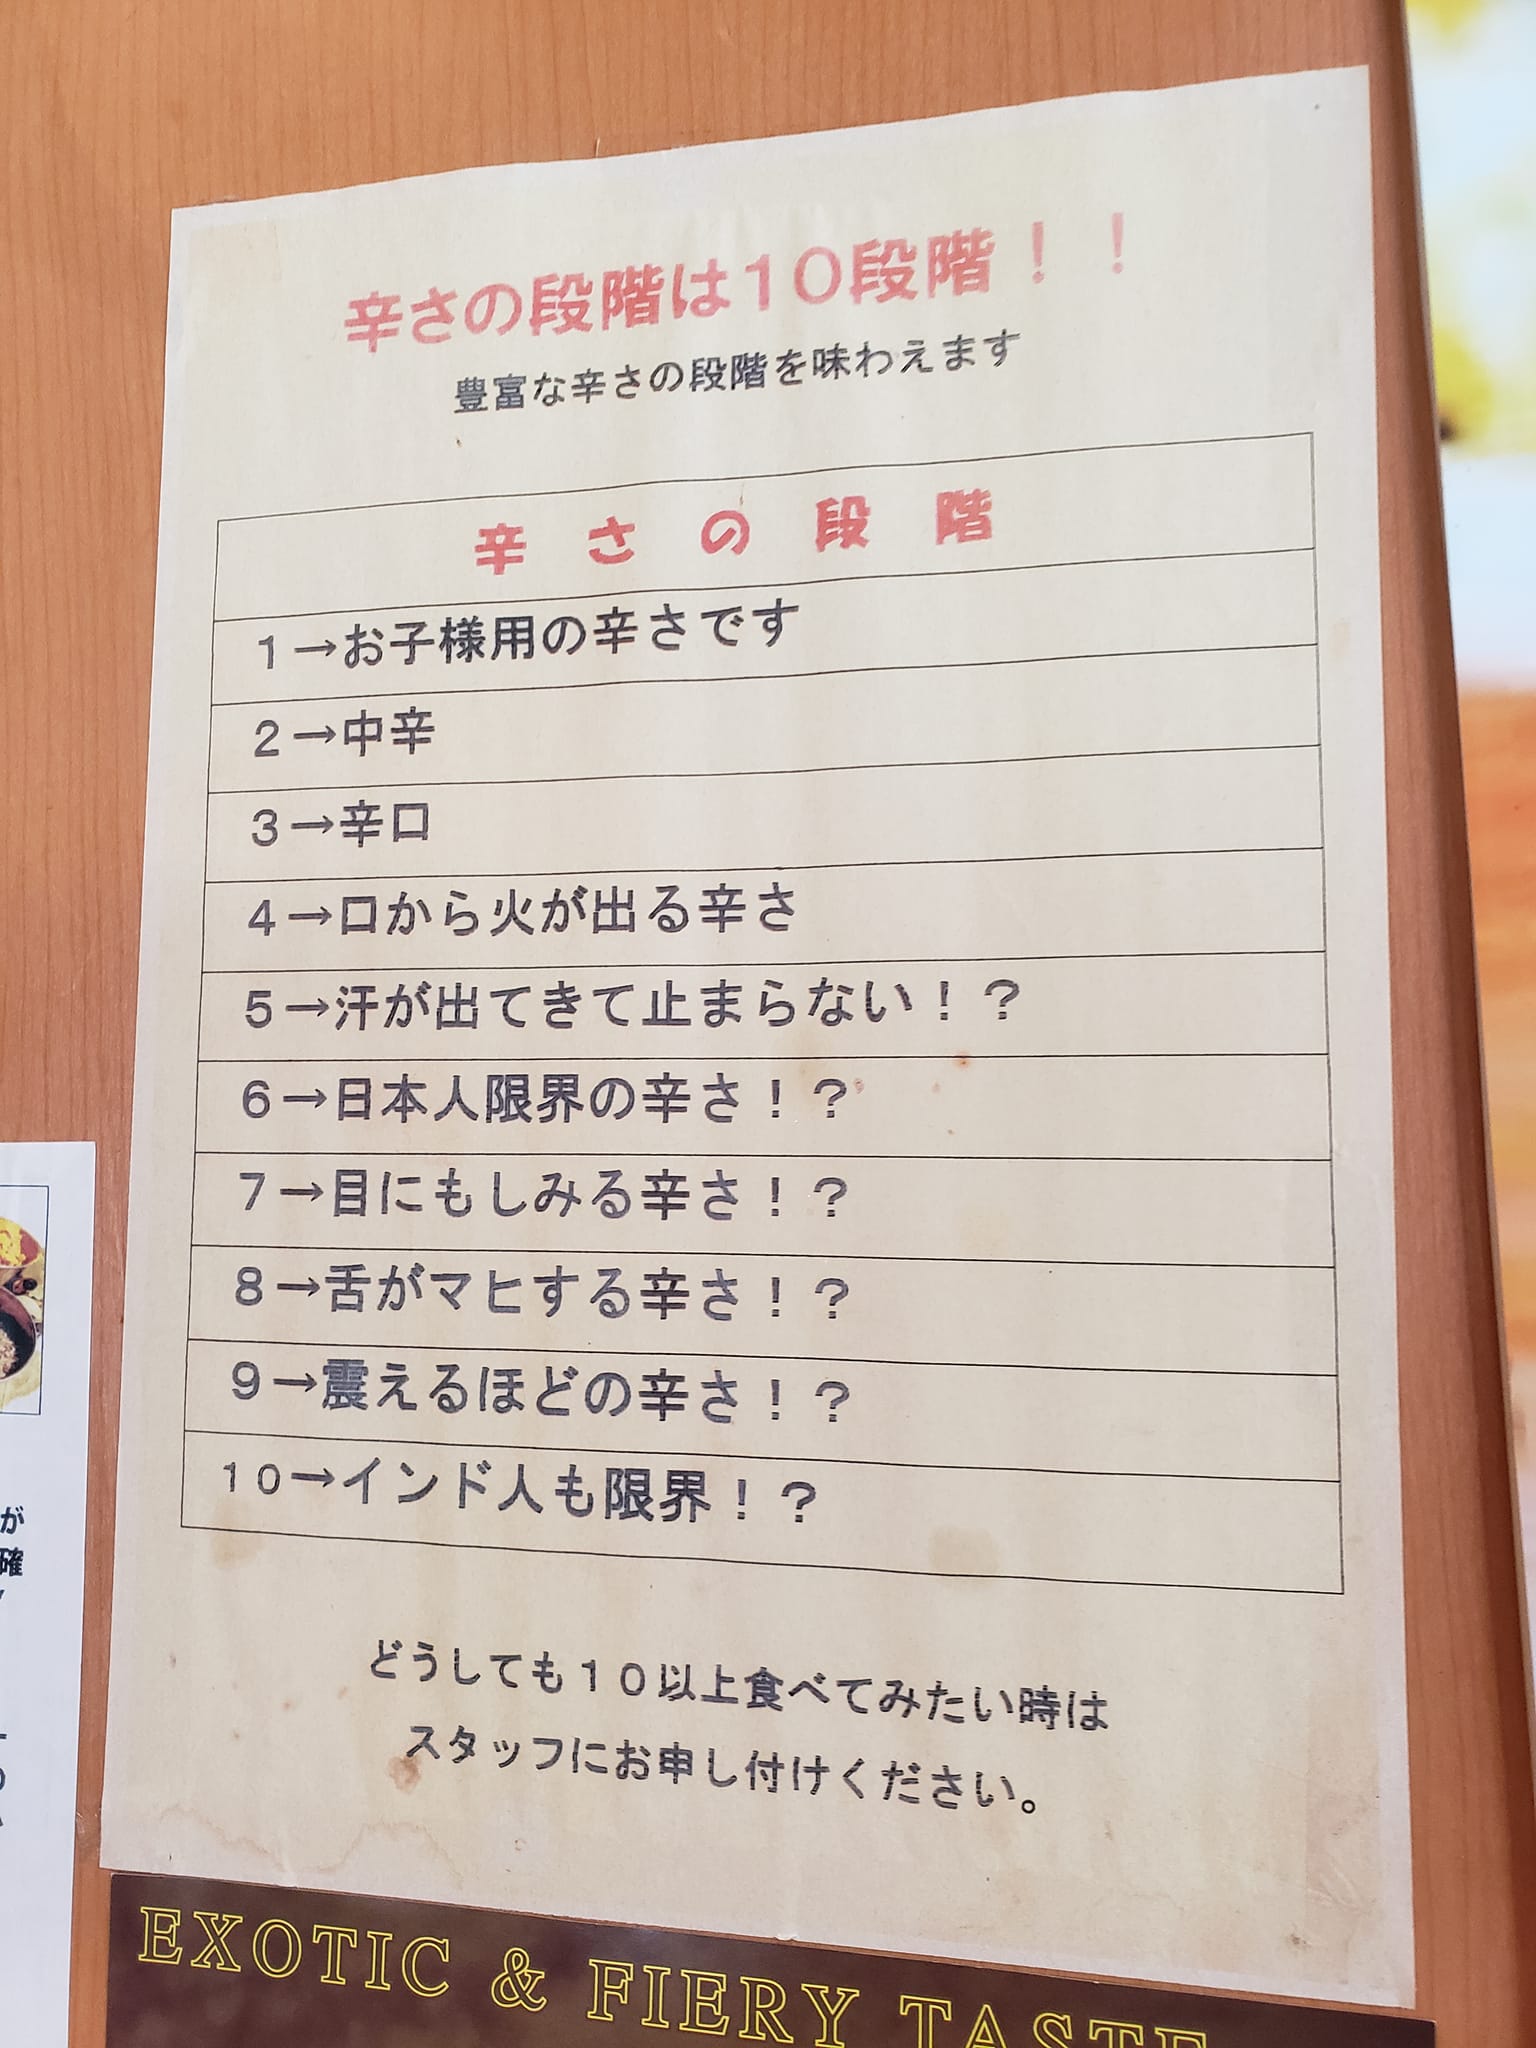 辛さの段階は１０段階！！
豊富な辛さの段階を味わえます
辛さの段階
１→お子様用の辛さです
２→中辛
３→辛口
４→口から火が出る辛さ
５→汗が出てきて止まらない！？
６→日本人限界の辛さ！？
７→目にもしみる辛さ！？
８→舌がマヒする辛さ！？
９→震えるほどの辛さ！？
１０→インド人も限界！？
どうしても１０以上食べてみたい時は
スタッフにお申し付けください。
EXOTIC & FIERY TASTE
が
確